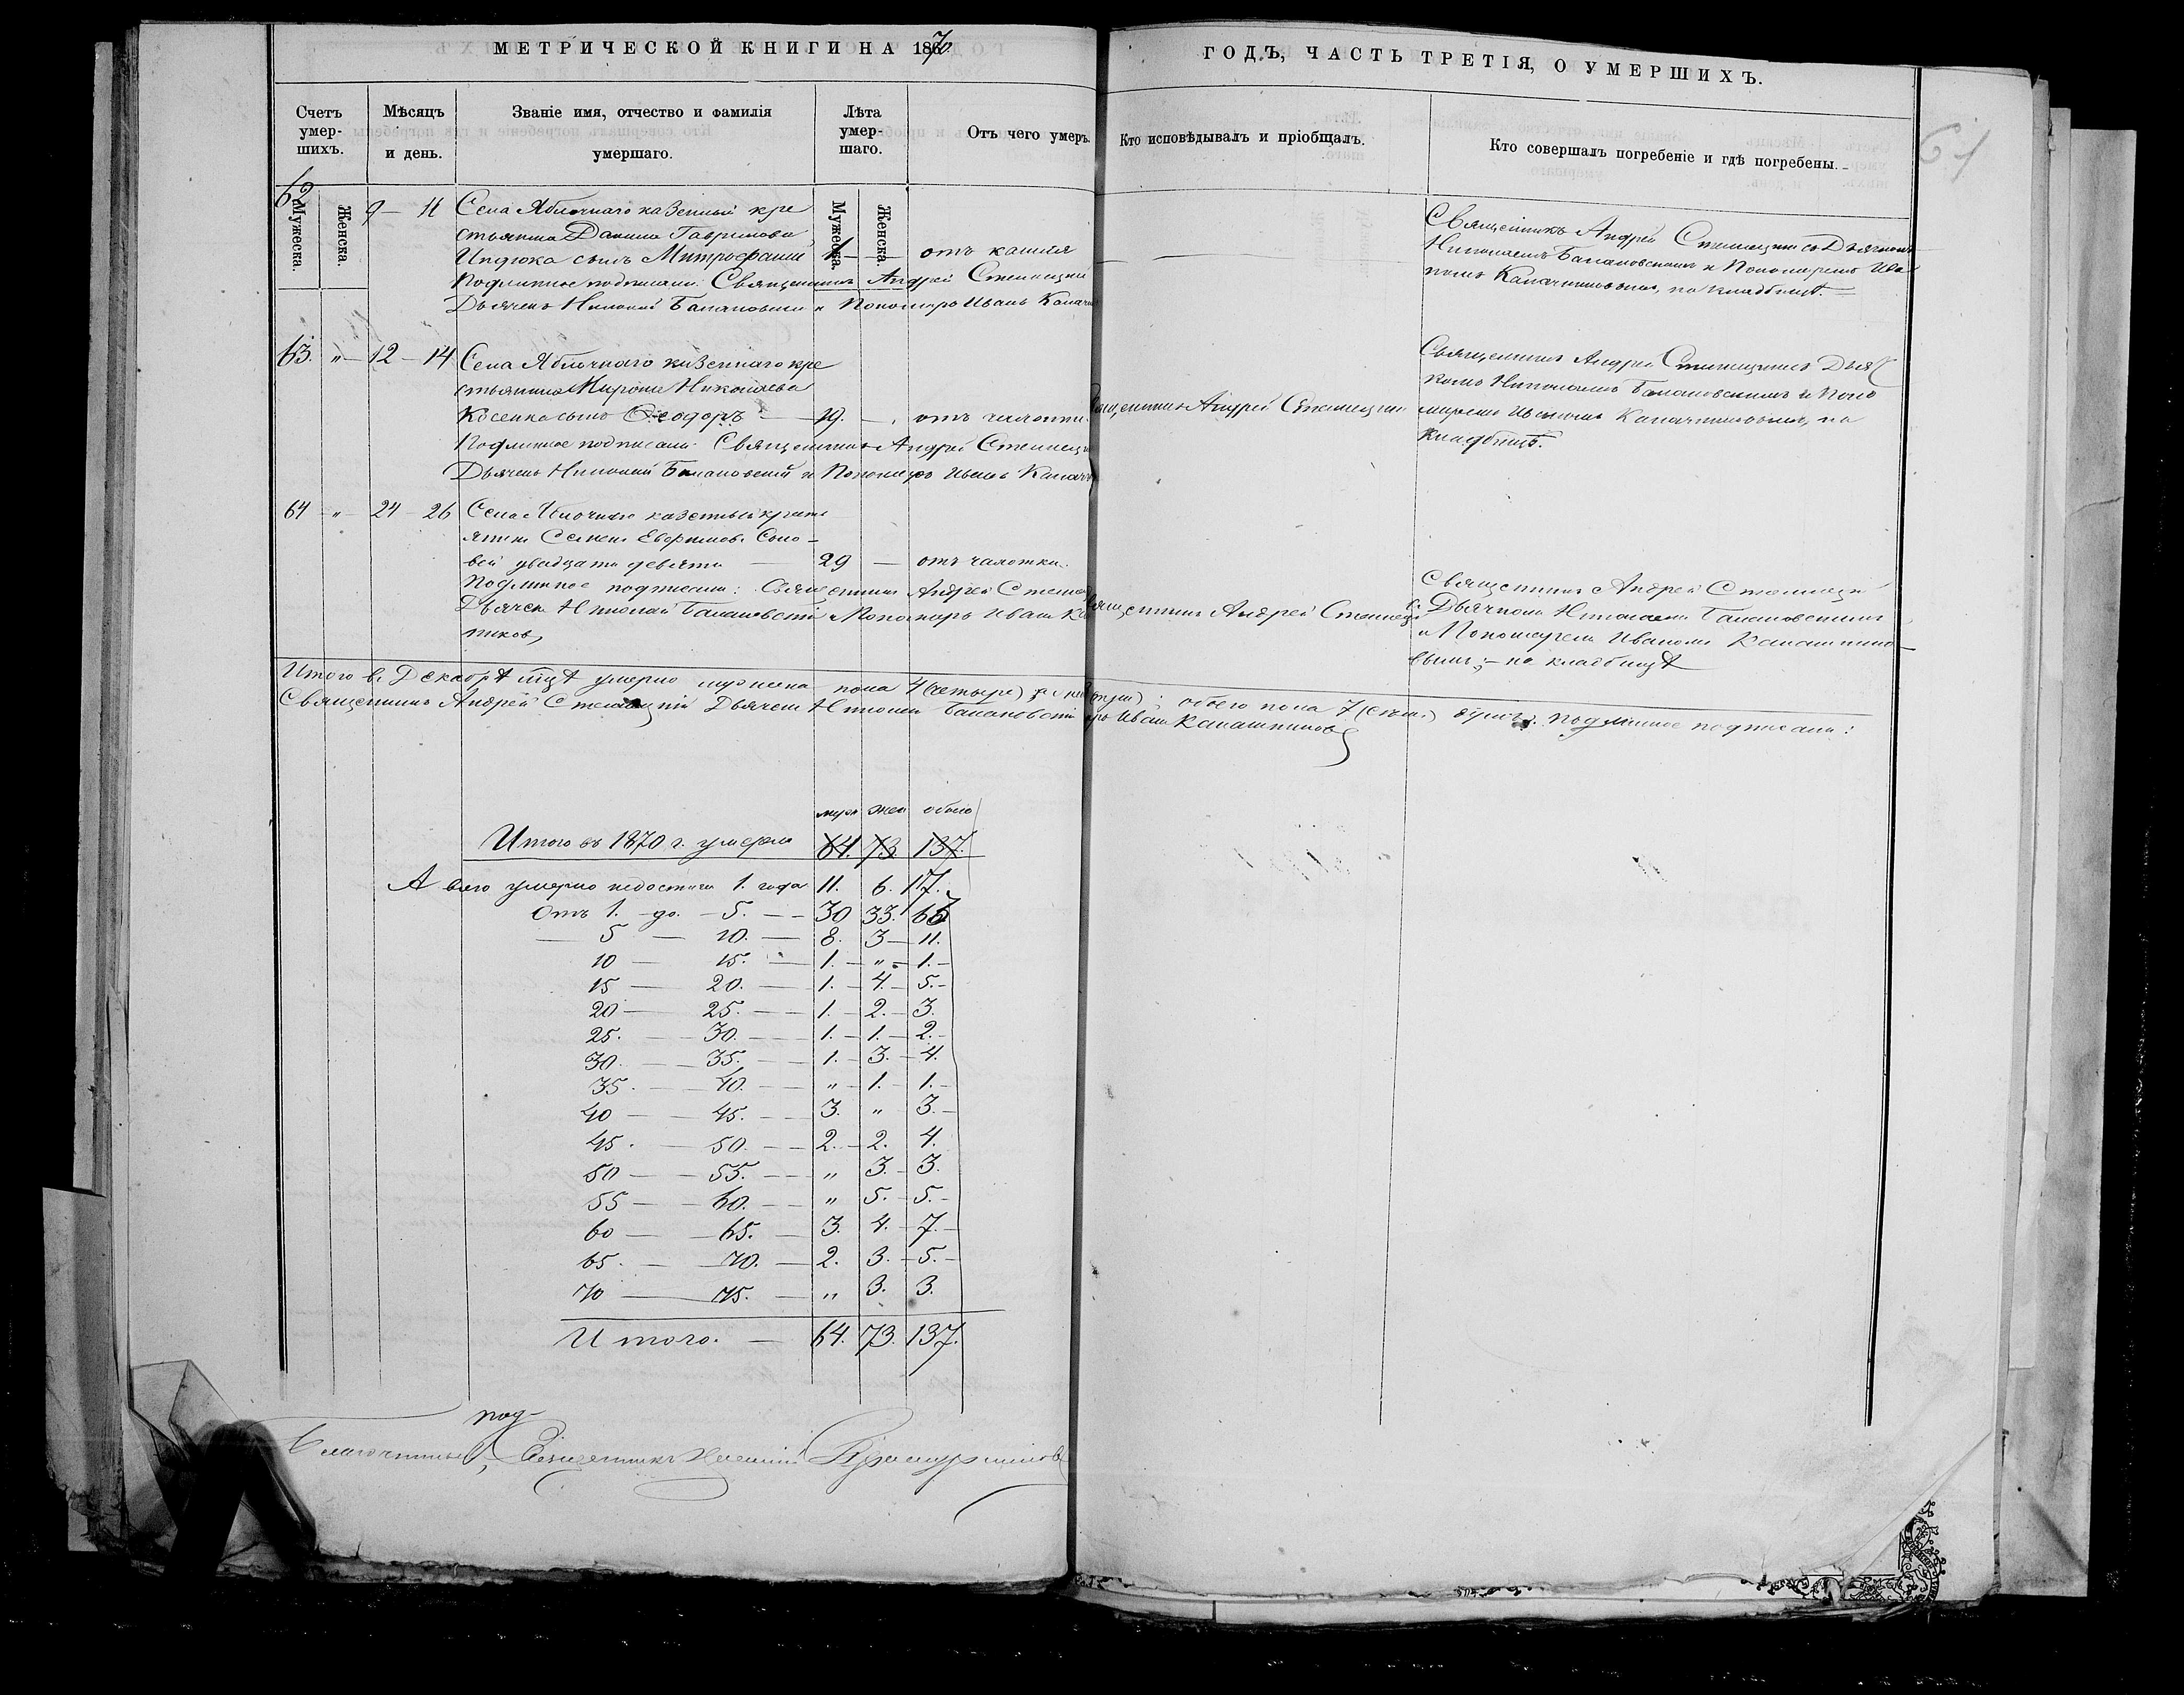 МЕТРИЧЕСКОЙ КНИГИ НА 1870 ГОДЪ, ЧАСТЬ ТРЕТІЯ, О УМЕРШИХЪ.
61
Счетъ умер-шихъ.
Мужеска.
Женска.
Мѣсяцъ и день.
Званіе имя, отчество и фамилія умершаго.
Лѣта умер-шаго.
Мужеска.
Женска.
Отъ чего умеръ.
Кто исповѣдывалъ и пріобщалъ.
Кто совершалъ погребеніе и гдѣ погребены.
62 9 — 11 Села Яблочнаго казенный кре
стьянина Данила Гаврилова
Индюка сынъ Митрофаній 1 — отъ кашля
Подлинное подписали: Священникъ Андрей Стеллецкій
Дьячекъ Николай Балановскій и Пономарь Иванъ Калаш
Священникъ Андрей Стеллецкій съ Дьячкомъ
Николаемъ Балановскимъ и Пономаремъ Ива
номъ Калашниковымъ, на кладбищѣ.
63. „ 12 — 14 Села Яблочнаго казеннаго кре
стьянина Мирона Николаева
Косенка сынъ Ѳеодоръ — 19. — отъ чахотки.
Подлинное подписали: Священникъ Андрей Стеллецкій
Дьячекъ Николай Балановскій и Пономарь Иванъ Калаш
Священникъ Андрей Стеллецкій
Священникъ Андрей Стеллецкій съ Дьяч
комъ Николаемъ Балановскимъ и Поно
маремъ Иваномъ Калашниковымъ, на
кладбищѣ.
64 „ 24 — 26 Села Яблочнаго казенный кресть
янинъ Семенъ Соло-
вей двадцати девяти — 29 — отъ чахотки.
Подлинное подписали: Священникъ Андрей Стеллец
Дьячекъ Николай Балановскій и Пономарь Иванъ Ка
никовъ
Священникъ Андрей Стеллецкій
Священникъ Андрей Стеллецкій
съ Дьячкомъ Николаемъ Балановскимъ
и Пономаремъ Иваномъ Калашнико
вымъ; — на кладбищѣ
Итого въ Декабрѣ мцѣ умерло мужеска пола 4 (четыре) обоего пола 7 (семь) душъ. Подлинное подписали:
Священникъ Андрей Стеллецкій Дьячекъ Николай Балановскій Иванъ Калашниковъ
муж жен обоего
Итого въ 1870 г. умерло 64. 73. 137.
А всего умерло недостигш 1. года 11. 6. 17.
Отъ 1. — до. — 5. — 30 33. 63
— 5 — 10. — 8. 3 — 11.
10 — 15. — 1. — „ — 1. —
15 — 20. — 1. — 4. — 5. —
20 — 25. — 1. — 2. — 3.
25. — 30. — 1. — 1. — 2. —
30. — 35. — 1. — 3. — 4.
35. — 40. — „ — 1. — 1. —
40 — 45. — 3. „ 3. —
45. — 50. — 2. — 2. 4.
50 — 55. — „ 3. — 3.
55 — 60. — „ 5. — 5. —
60 — 65. — 3. 4. — 7. —
65. — 70. — 2. 3. — 5. —
70 — 75. — „ 3. 3.
Итого. — 64. 73. 137.
под-
Благочинный, Священникъ